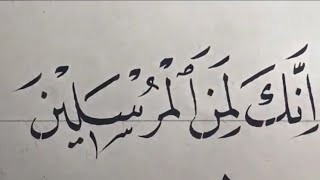 اِنَّكَ لَمِنَ الْمُرْسَلِيْنَ